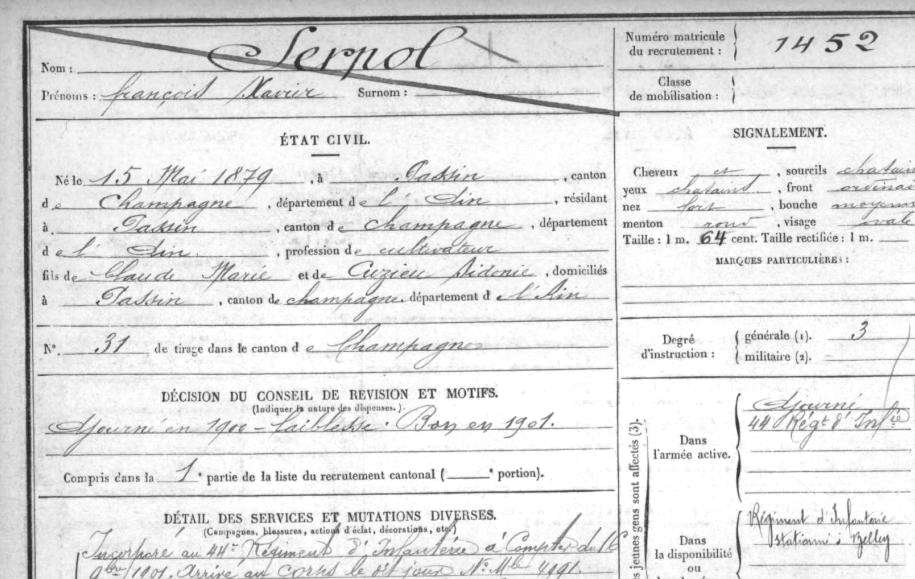 Serpol
Nom :
Prénoms : François Xavier Surnom :
Numéro matricule du recrutement : 1452
Classe de mobilisation :
ÉTAT CIVIL.
Né le 15 Mai 1879, à Passin, canton
de Champagne, département de l'Ain, résidant
à Passin, canton de Champagne, département
de l'Ain, profession de cultivateur
fils de Claude Marie et de Cuzieu Sidonie, domiciliés
à Passin, canton de Champagne, département de l'Ain
N° 31 de tirage dans le canton de Champagne
SIGNALEMENT.
Cheveux et, sourcils chatain
yeux chatains, front ordinai
nez fort, bouche moyenne
menton rond, visage ovale
Taille : 1 m. 64 cent. Taille rectifiée : 1 m.
MARQUES PARTICULIÈRES :
Degré d'instruction :
générale (1). 3
militaire (2).
DÉCISION DU CONSEIL DE REVISION ET MOTIFS.
(Indiquer la nature des dispenses.)
Ajourné en 1900 - faiblesse. Bon en 1901.
Compris dans la 1e partie de la liste du recrutement cantonal ( e portion).
DÉTAIL DES SERVICES ET MUTATIONS DIVERSES.
(Campagnes, blessures, actions d'éclat, décorations, etc.)
Incorporé au 44e Régiment d'Infanterie à Compter du 16
9bre 1901. Arrivé au corps le dit jour. No Mle 4191.
es jeunes gens sont affectés (3).
Dans l'armée active.
Ajourné
44 Régt d'Infie
Dans la disponibilité ou
Régiment d'Infanterie
stationné à Belley